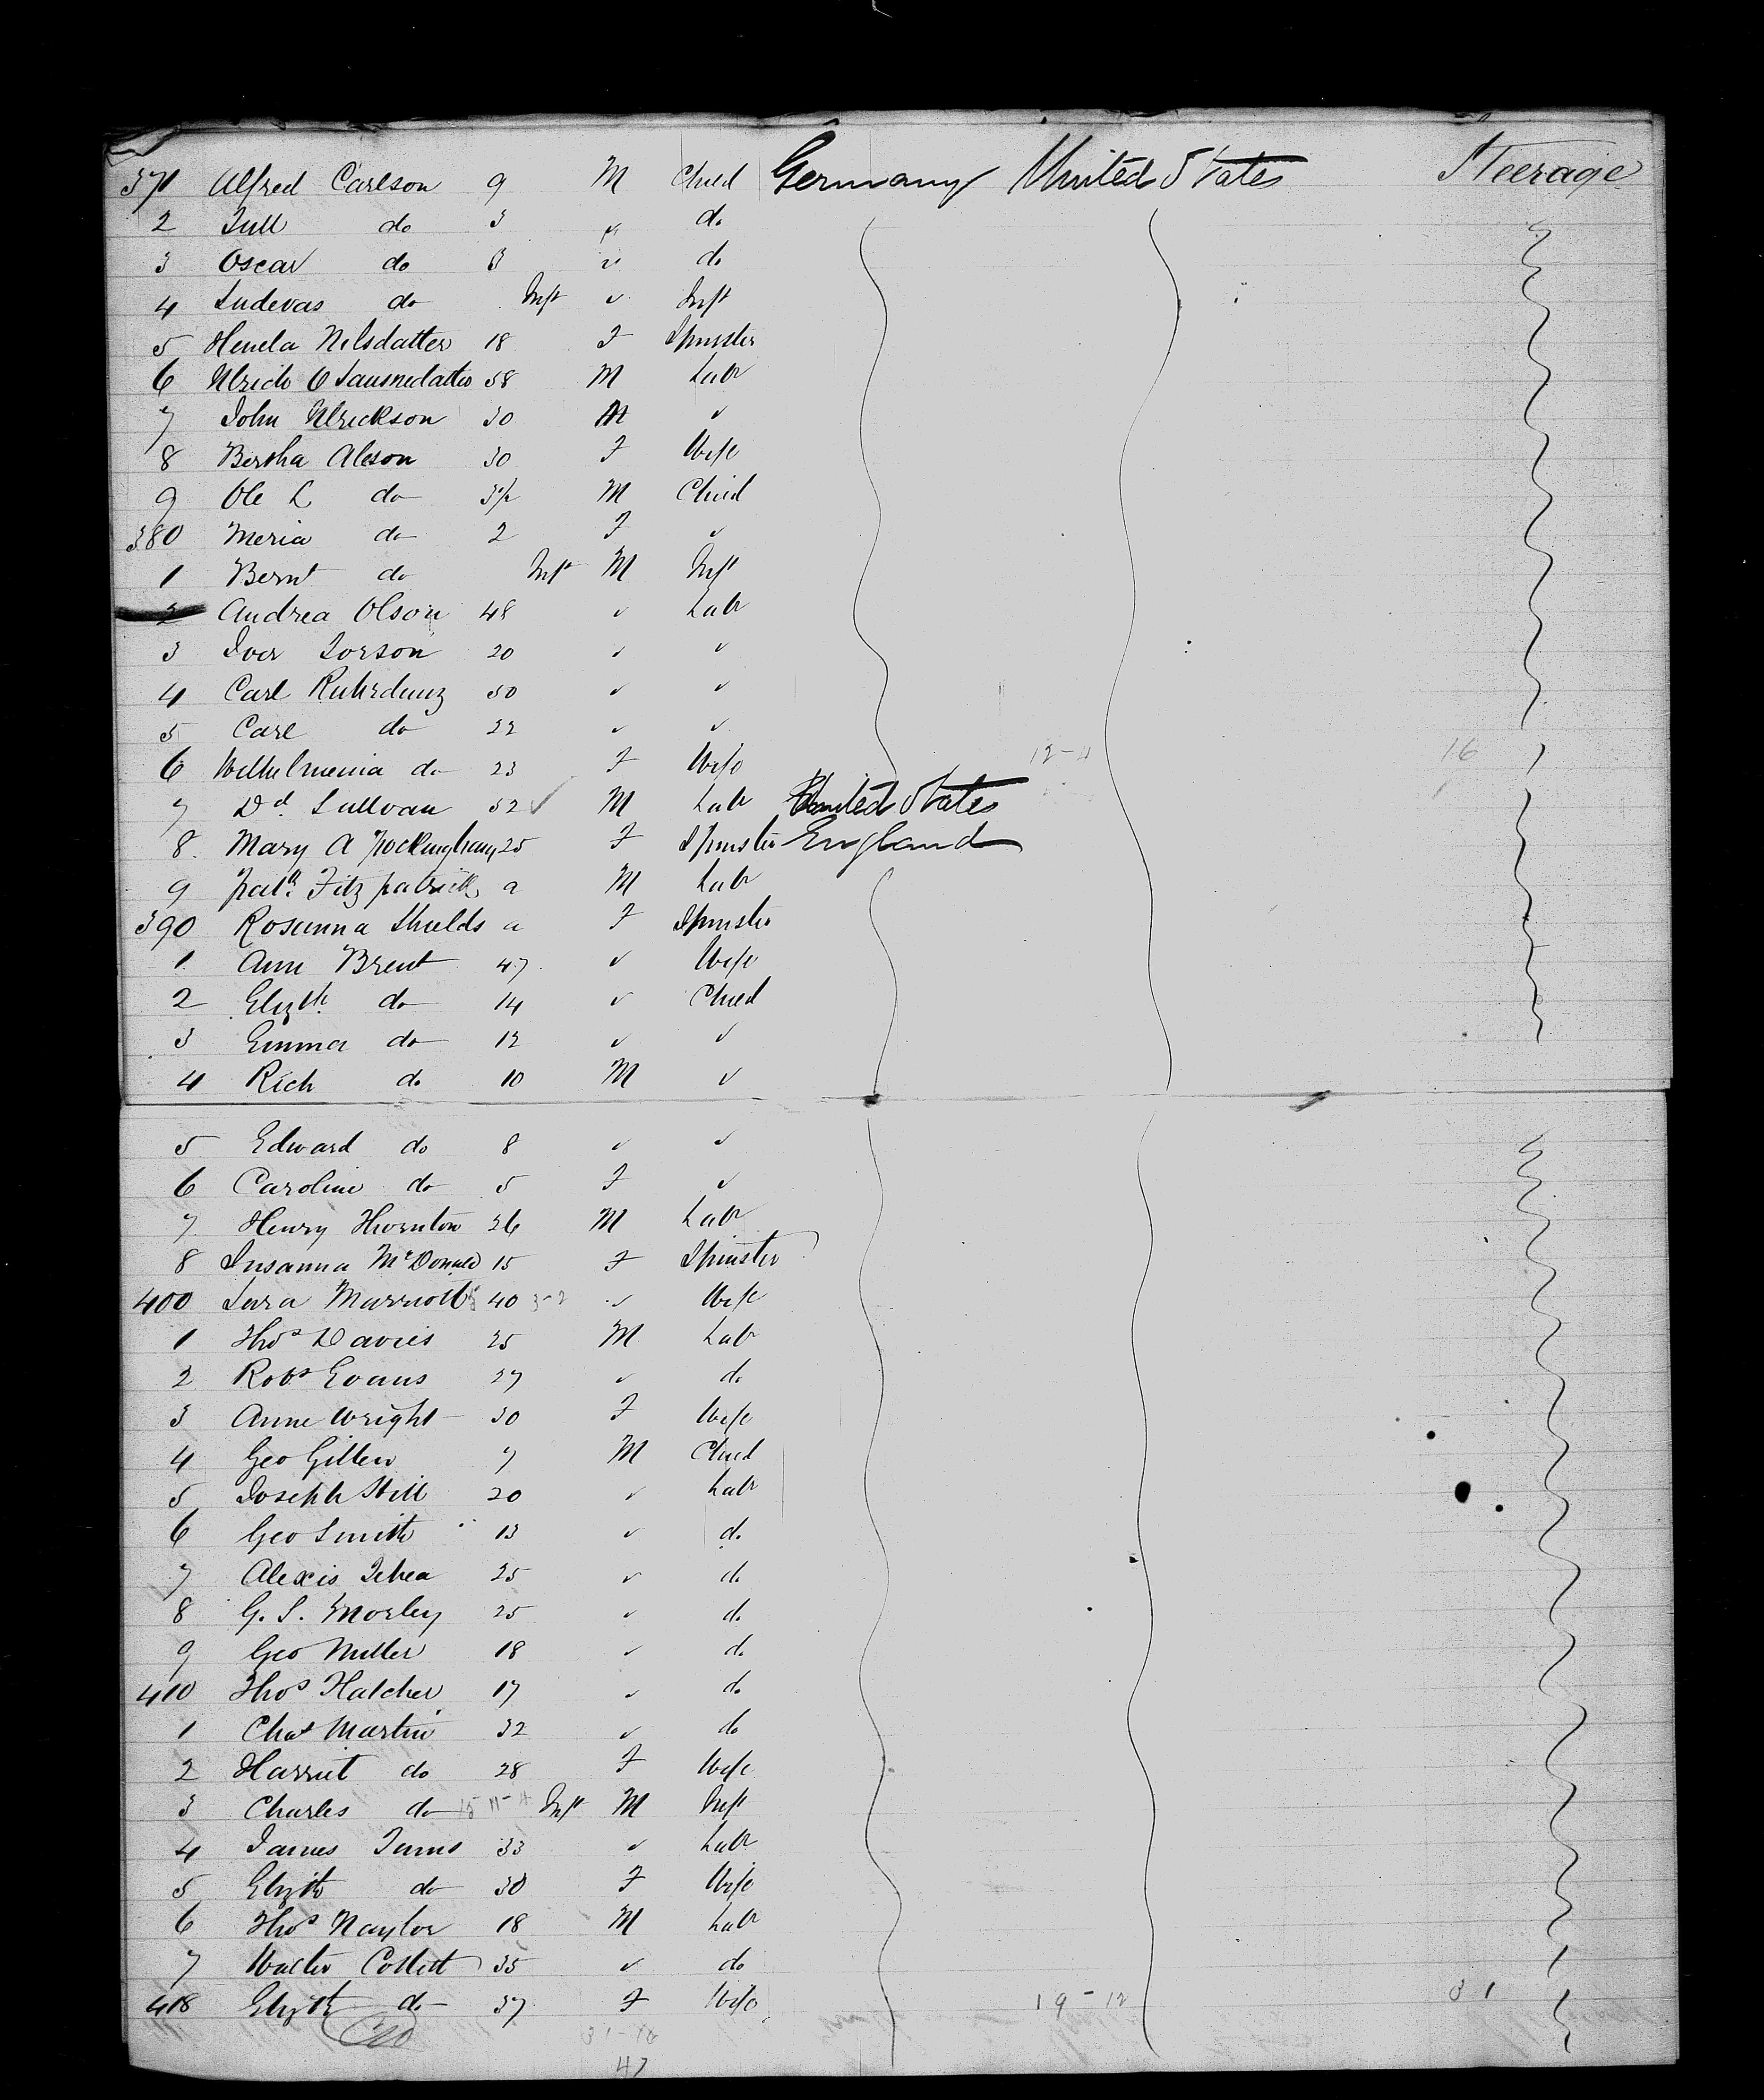 371 Alfred Carlson 9 M Child Germany United States Steerage
2 Tull do 3 " do
3 Oscar do 3 " do
4 Ludevas do Inft " Inft
5 Henela Nelsdatter 18 F Spinster
6 Ulrich 58 M Labr
7 John Ulrickson 30 M "
8 Bertha Aleson 30 F Wife
9 Ole L do 3½ M Child
380 Meria do 2 F "
1 Bernt do Inft M Inft
2 Andrea Olson 48 " Labr
3 Iver Torson 20 " "
4 Carl Ruhrdanz 50 " "
5 Carl do 22 " "
6 Wilhelmenia do 23 F Wife 12-4 16
7 Dd. Sullivan 32 M Labr United States
8 Mary A Rockingham 25 F Spinster England
9 Patk. Fitzpatrick a M Labr
390 Rosanna Shields a F Spinster
1 Ann Brent 47 " Wife
2 Elizth. do 14 " Child
3 Emma do 12 " "
4 Rich do 10 M "
5 Edward do 8 " "
6 Caroline do 5 F "
7 Henry Thornton 36 M Labr
8 Susanna McDonald 15 F Spinster
400 Sara Marriott 40 " Wife
1 Thos Davies 35 M Labr
2 Robt Evans 27 " do
3 Anne Wright 30 F Wife
4 Geo Gillen 7 M Child
5 Joseph Hill 20 " Labr
6 Geo Smith 13 " do
7 Alexis 25 " do
8 G. S. Morley 25 " do
9 Geo Miller 18 " do
410 Thos Hatcher 17 " do
1 Chas Martin 32 " do
2 Harriet do 28 F Wife
3 Charles do Inft M Inft
4 James 33 " Labr
5 Elizth do 30 F Wife
6 Thos Naylor 18 M Labr
7 Walter Collett 35 " do
418 Elizth do 37 F Wife 19-12 31
47